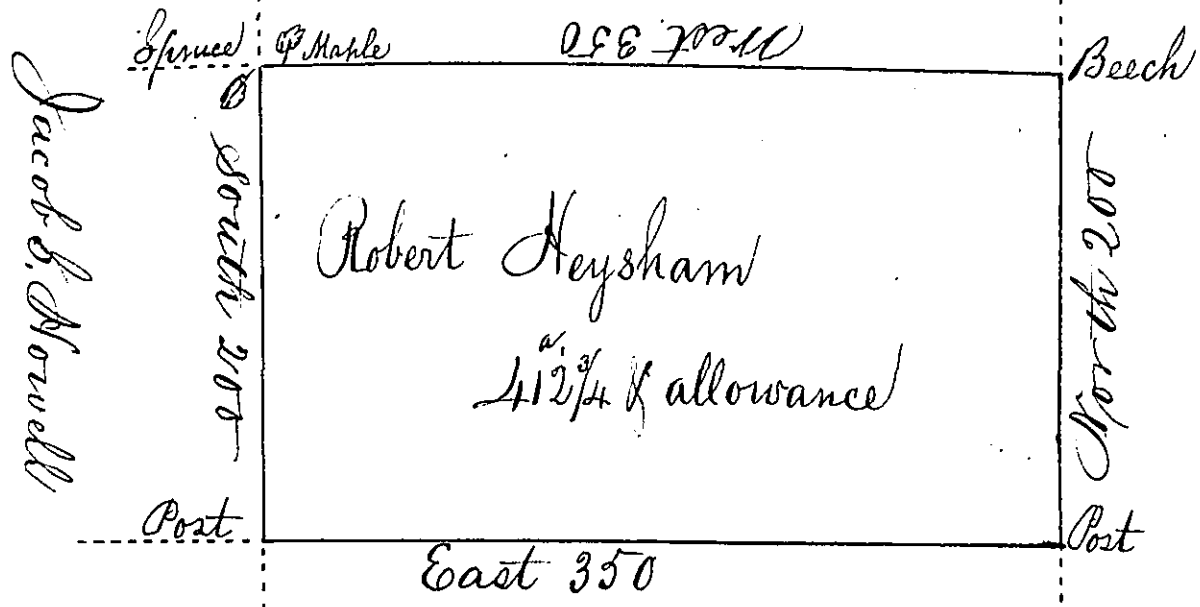 Spruce
Maple
West 350
Beech
Jacob S. Howell
South 200
Robert Heysham
412 3/4 a. & allowance
North 200
Post
Post
East 350